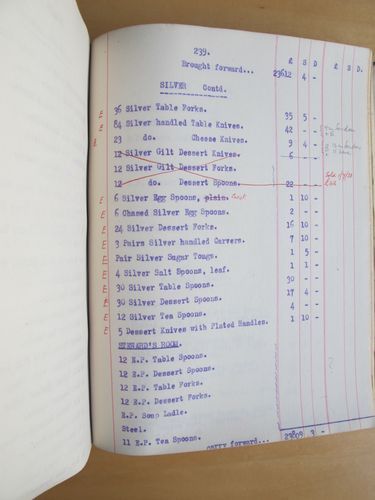 239.
£ S D £ S D.
Brought forward... 23612 4 -
SILVER Contd.
E 36 Silver Table Forks. 35 5 -
E 84 Silver handled Table Knives. 42 - -
23 do. Cheese Knives. 9 4 -
12 Silver Gilt Dessert Knives. 6 - -
12 Silver Gilt Dessert Forks.
12 do. Dessert Spoons. 22 - -
E 6 Silver Egg Spoons, plain. 1 10 -
E 6 Chased Silver Egg Spoons. 2 - -
E 24 Silver Dessert Forks. 16 10 -
E 3 Pairs Silver handled Carvers. 7 10 -
E Pair Silver Sugar Tongs. 1 5
E 4 Silver Salt Spoons, leaf. 1 1 -
E 30 Silver Table Spoons. 30 - -
E 30 Silver Dessert Spoons. 17 4 -
E 12 Silver Tea Spoons. 4 - -
E 5 Dessert Knives with Plated Handles. 1 10 -
STEWARD'S ROOM.
12 E.P. Table Spoons.
12 E.P. Dessert Spoons.
12 E.P. Table Forks.
12 E.P. Dessert Forks.
E.P. Soup Ladle.
Steel.
11 E.P. Tea Spoons.
carry forward... 23809 3 -